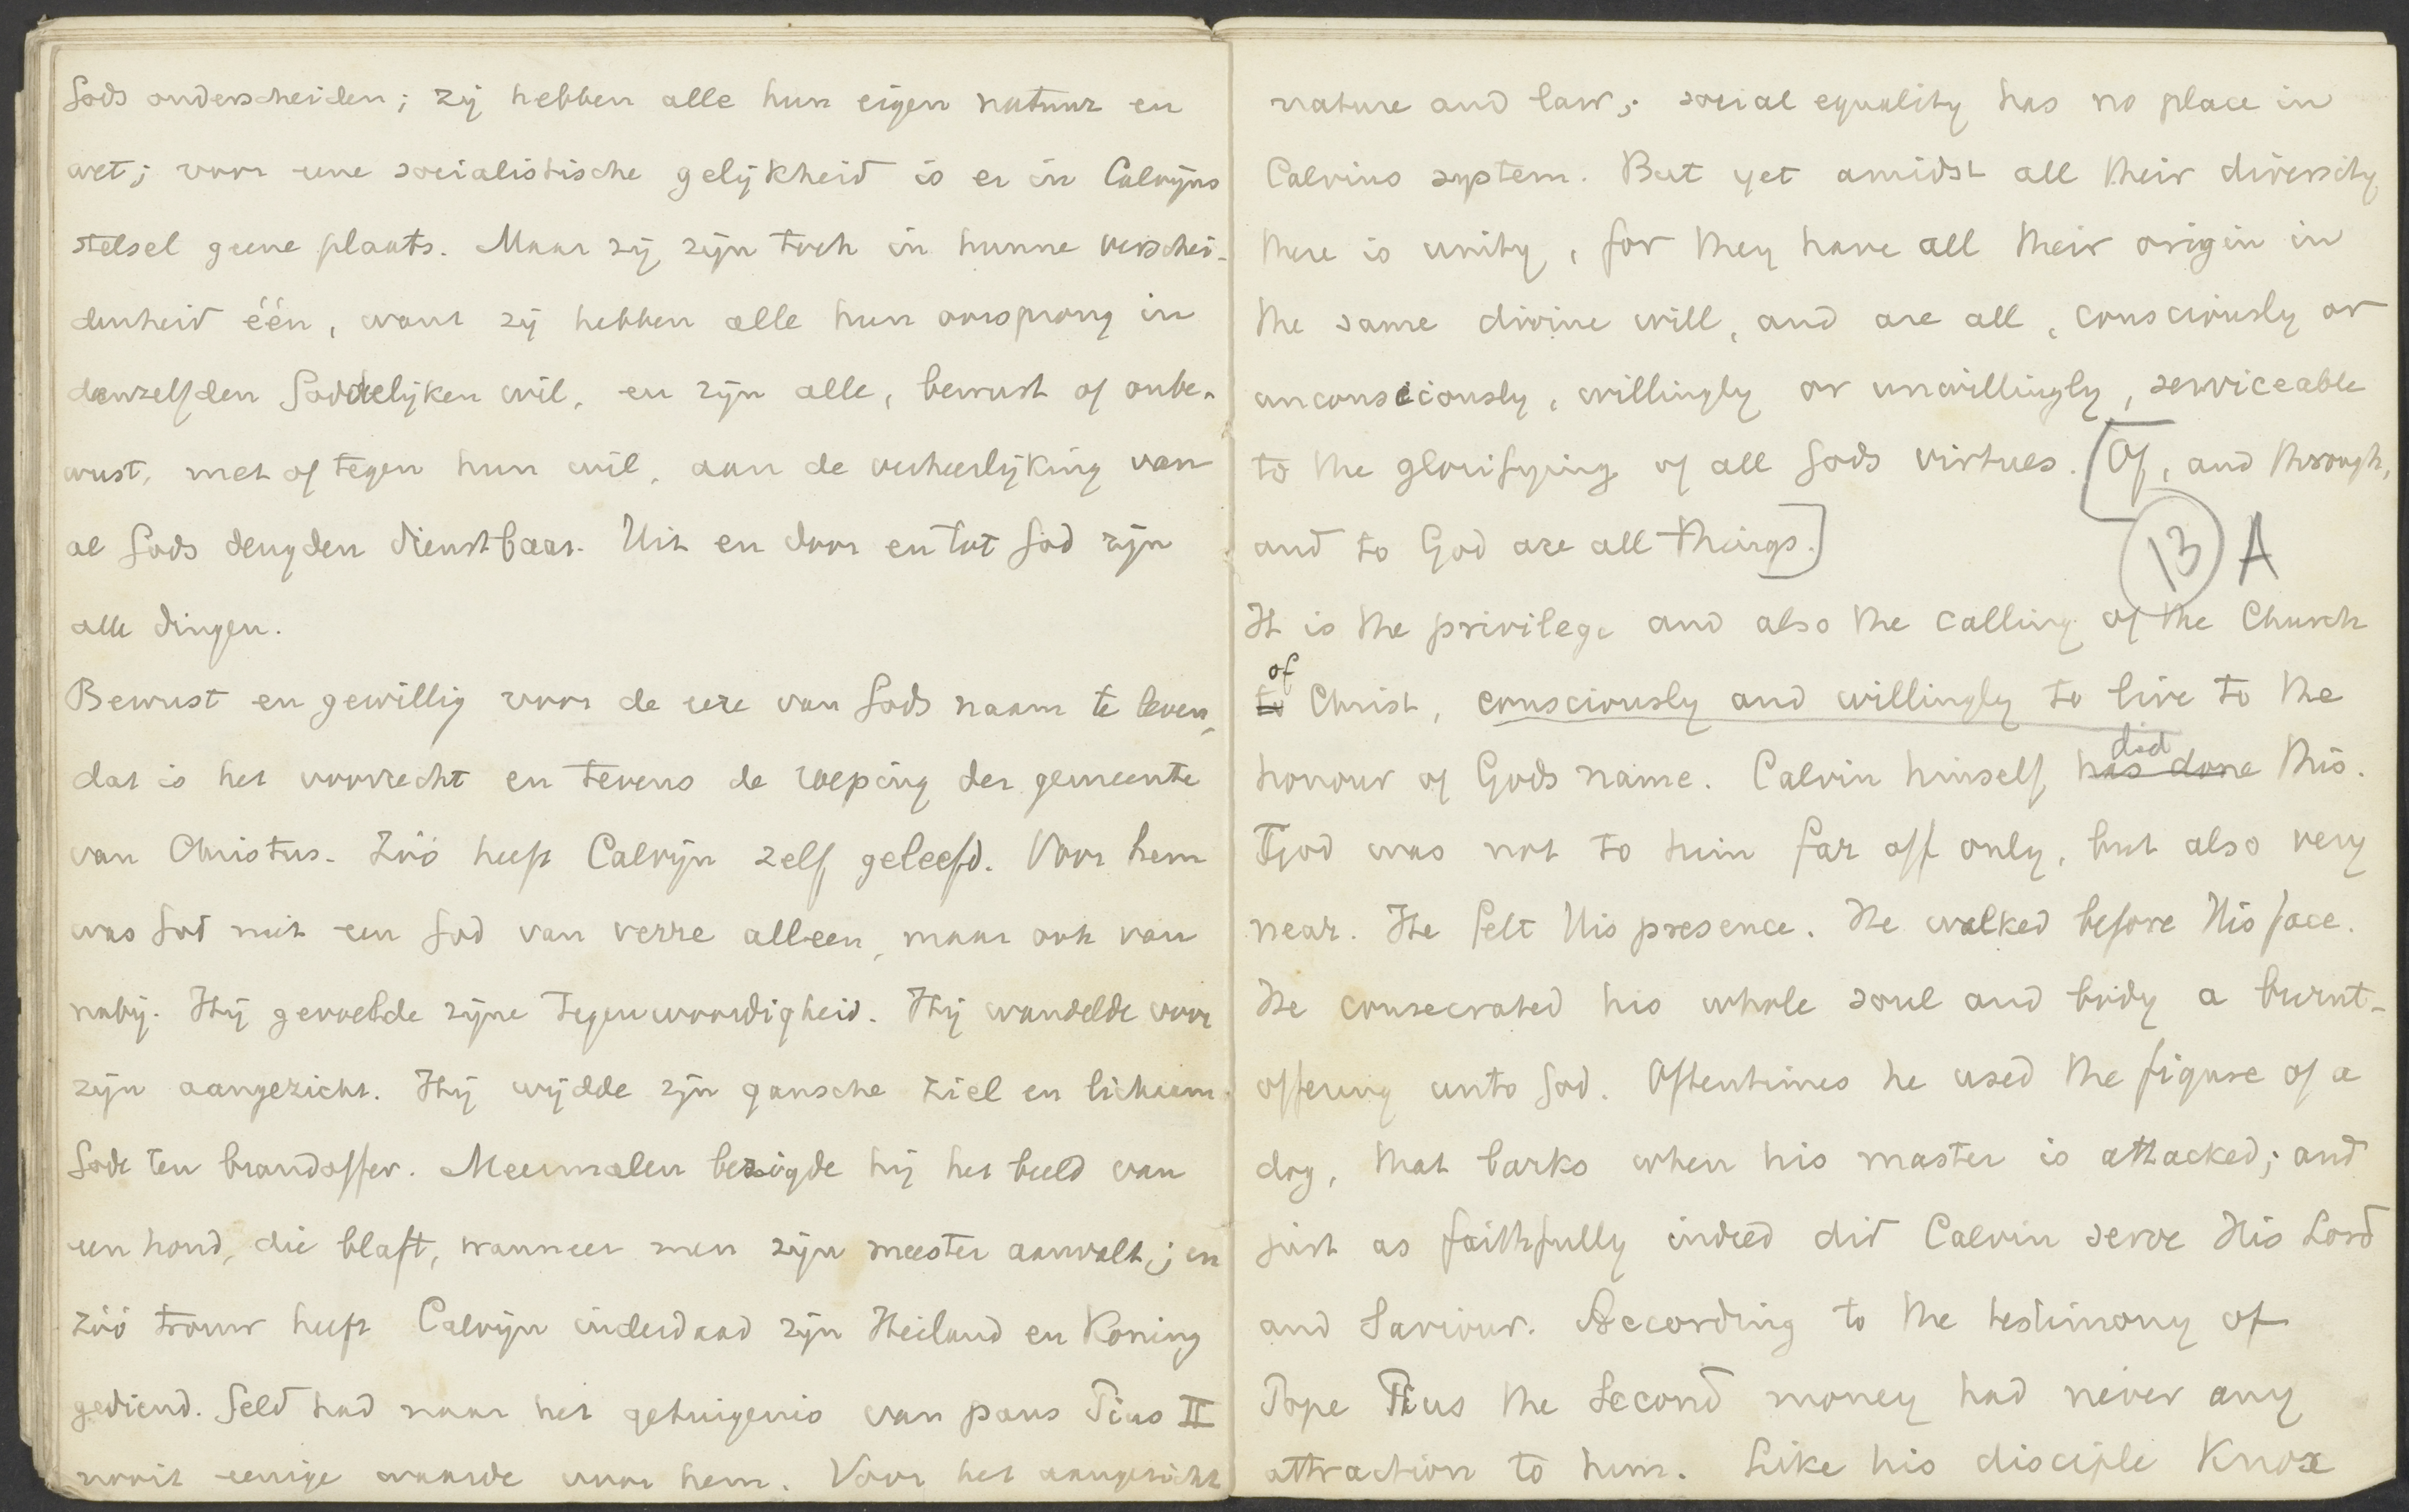 Gods onderscheiden; zij hebben alle hun eigen natuur en
wet; voor eene socialistische gelijkheid is er in Calvijns
stelsel geene plaats. Maar zij zijn toch in hunne verschei-
denheid één, want zij hebben alle hun oorsprong in
denzelfden Goddelijken wil, en zijn alle, bewust of onbe-
wust, met of tegen hun wil, aan de verheerlijking van
al Gods deugden dienstbaar. Uit en door en tot God zijn
alle dingen.
Bewust en gewillig voor de eere van Gods naam te leven,
dat is het voorrecht en tevens de roeping der gemeente
van Christus. Zóó heeft Calvijn zelf geleefd. Voor hem
was God niet een God van verre alleen, maar ook van
nabij. Hij gevoelde zijne tegenwoordigheid. Hij wandelde voor
zijn aangezicht. Hij wijdde zijn gansche ziel en lichaam
Gode ten brandoffer. Meermalen bezigde hij het beeld van
een hond, die blaft, wanneer men zijn meester aanvalt; en
zóó trouw heeft Calvijn inderdaad zijn Heiland en Koning
gediend. Geld had naar het getuigenis van paus Pius II
nooit eenige waarde voor hem. Voor het aangezicht
nature and law; social equality has no place in
Calvins system. But yet amidst all their diversity
there is unity, for they have all their origin in
the same divine will, and are all, consciously or
unconsciously, willingly or unwillingly, serviceable
to the glorifying of all Gods virtues. [Of, and through,
and to God are all things.]
13 A
It is the privilege and also the calling of the Church
of
to Christ, consciously and willingly to live to the
did
honour of Gods name. Calvin himself has done this.
God was not to him far off only, but also very
near. He felt His presence. He walked before His face.
He consecrated his whole soul and body a burnt-
offering unto God. Oftentimes he used the figure of a
dog, that barks when his master is attacked; and
just as faithfully indeed did Calvin serve His Lord
and Saviour. According to the testimony of
Pope Pius the Second money had never any
attraction to him. Like his disciple Knox